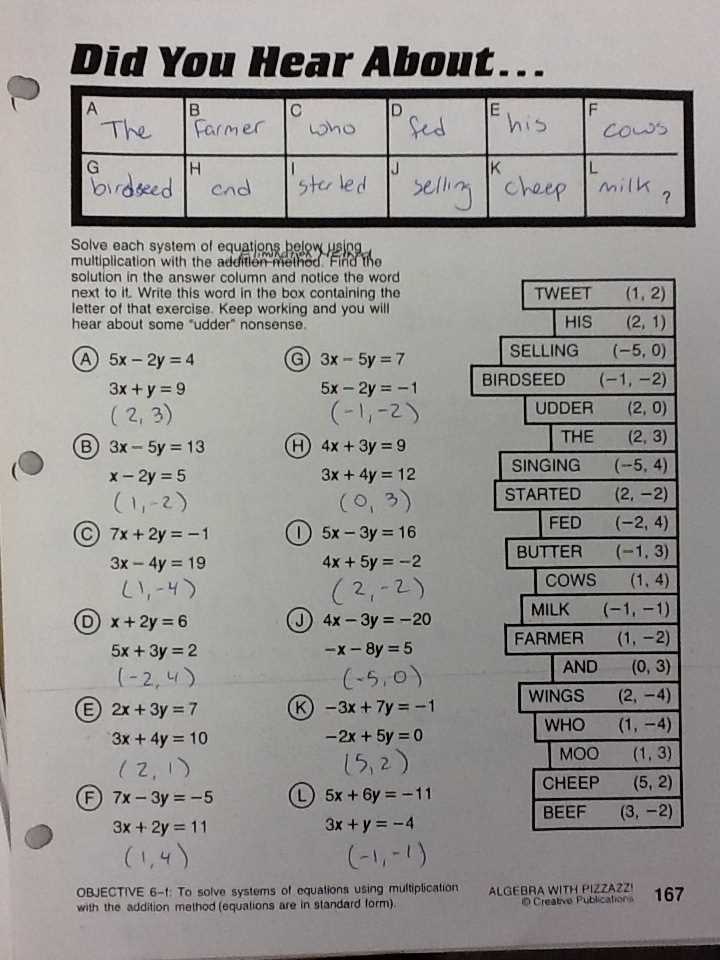 Did You Hear About...
A B C D E F
The Farmer who fed his cows
G H I J K L
birdseed and started selling cheep milk ?
Solve each system of equations below using
Elimination Method
multiplication with the addition method. Find the
solution in the answer column and notice the word
next to it. Write this word in the box containing the
letter of that exercise. Keep working and you will
hear about some "udder" nonsense.
A 5x − 2y = 4
3x + y = 9
(2, 3)
B 3x − 5y = 13
x − 2y = 5
(1, -2)
C 7x + 2y = −1
3x − 4y = 19
(1, -4)
D x + 2y = 6
5x + 3y = 2
(-2, 4)
E 2x + 3y = 7
3x + 4y = 10
(2, 1)
F 7x − 3y = −5
3x + 2y = 11
(1, 4)
G 3x − 5y = 7
5x − 2y = −1
(-1, -2)
H 4x + 3y = 9
3x + 4y = 12
(0, 3)
I 5x − 3y = 16
4x + 5y = −2
(2, -2)
J 4x − 3y = −20
−x − 8y = 5
(-5, 0)
K −3x + 7y = −1
−2x + 5y = 0
(5, 2)
L 5x + 6y = −11
3x + y = −4
(-1, -1)
TWEET (1, 2)
HIS (2, 1)
SELLING (−5, 0)
BIRDSEED (−1, −2)
UDDER (2, 0)
THE (2, 3)
SINGING (−5, 4)
STARTED (2, −2)
FED (−2, 4)
BUTTER (−1, 3)
COWS (1, 4)
MILK (−1, −1)
FARMER (1, −2)
AND (0, 3)
WINGS (2, −4)
WHO (1, −4)
MOO (1, 3)
CHEEP (5, 2)
BEEF (3, −2)
OBJECTIVE 6–f: To solve systems of equations using multiplication
with the addition method (equations are in standard form).
ALGEBRA WITH PIZZAZZ!
© Creative Publications
167